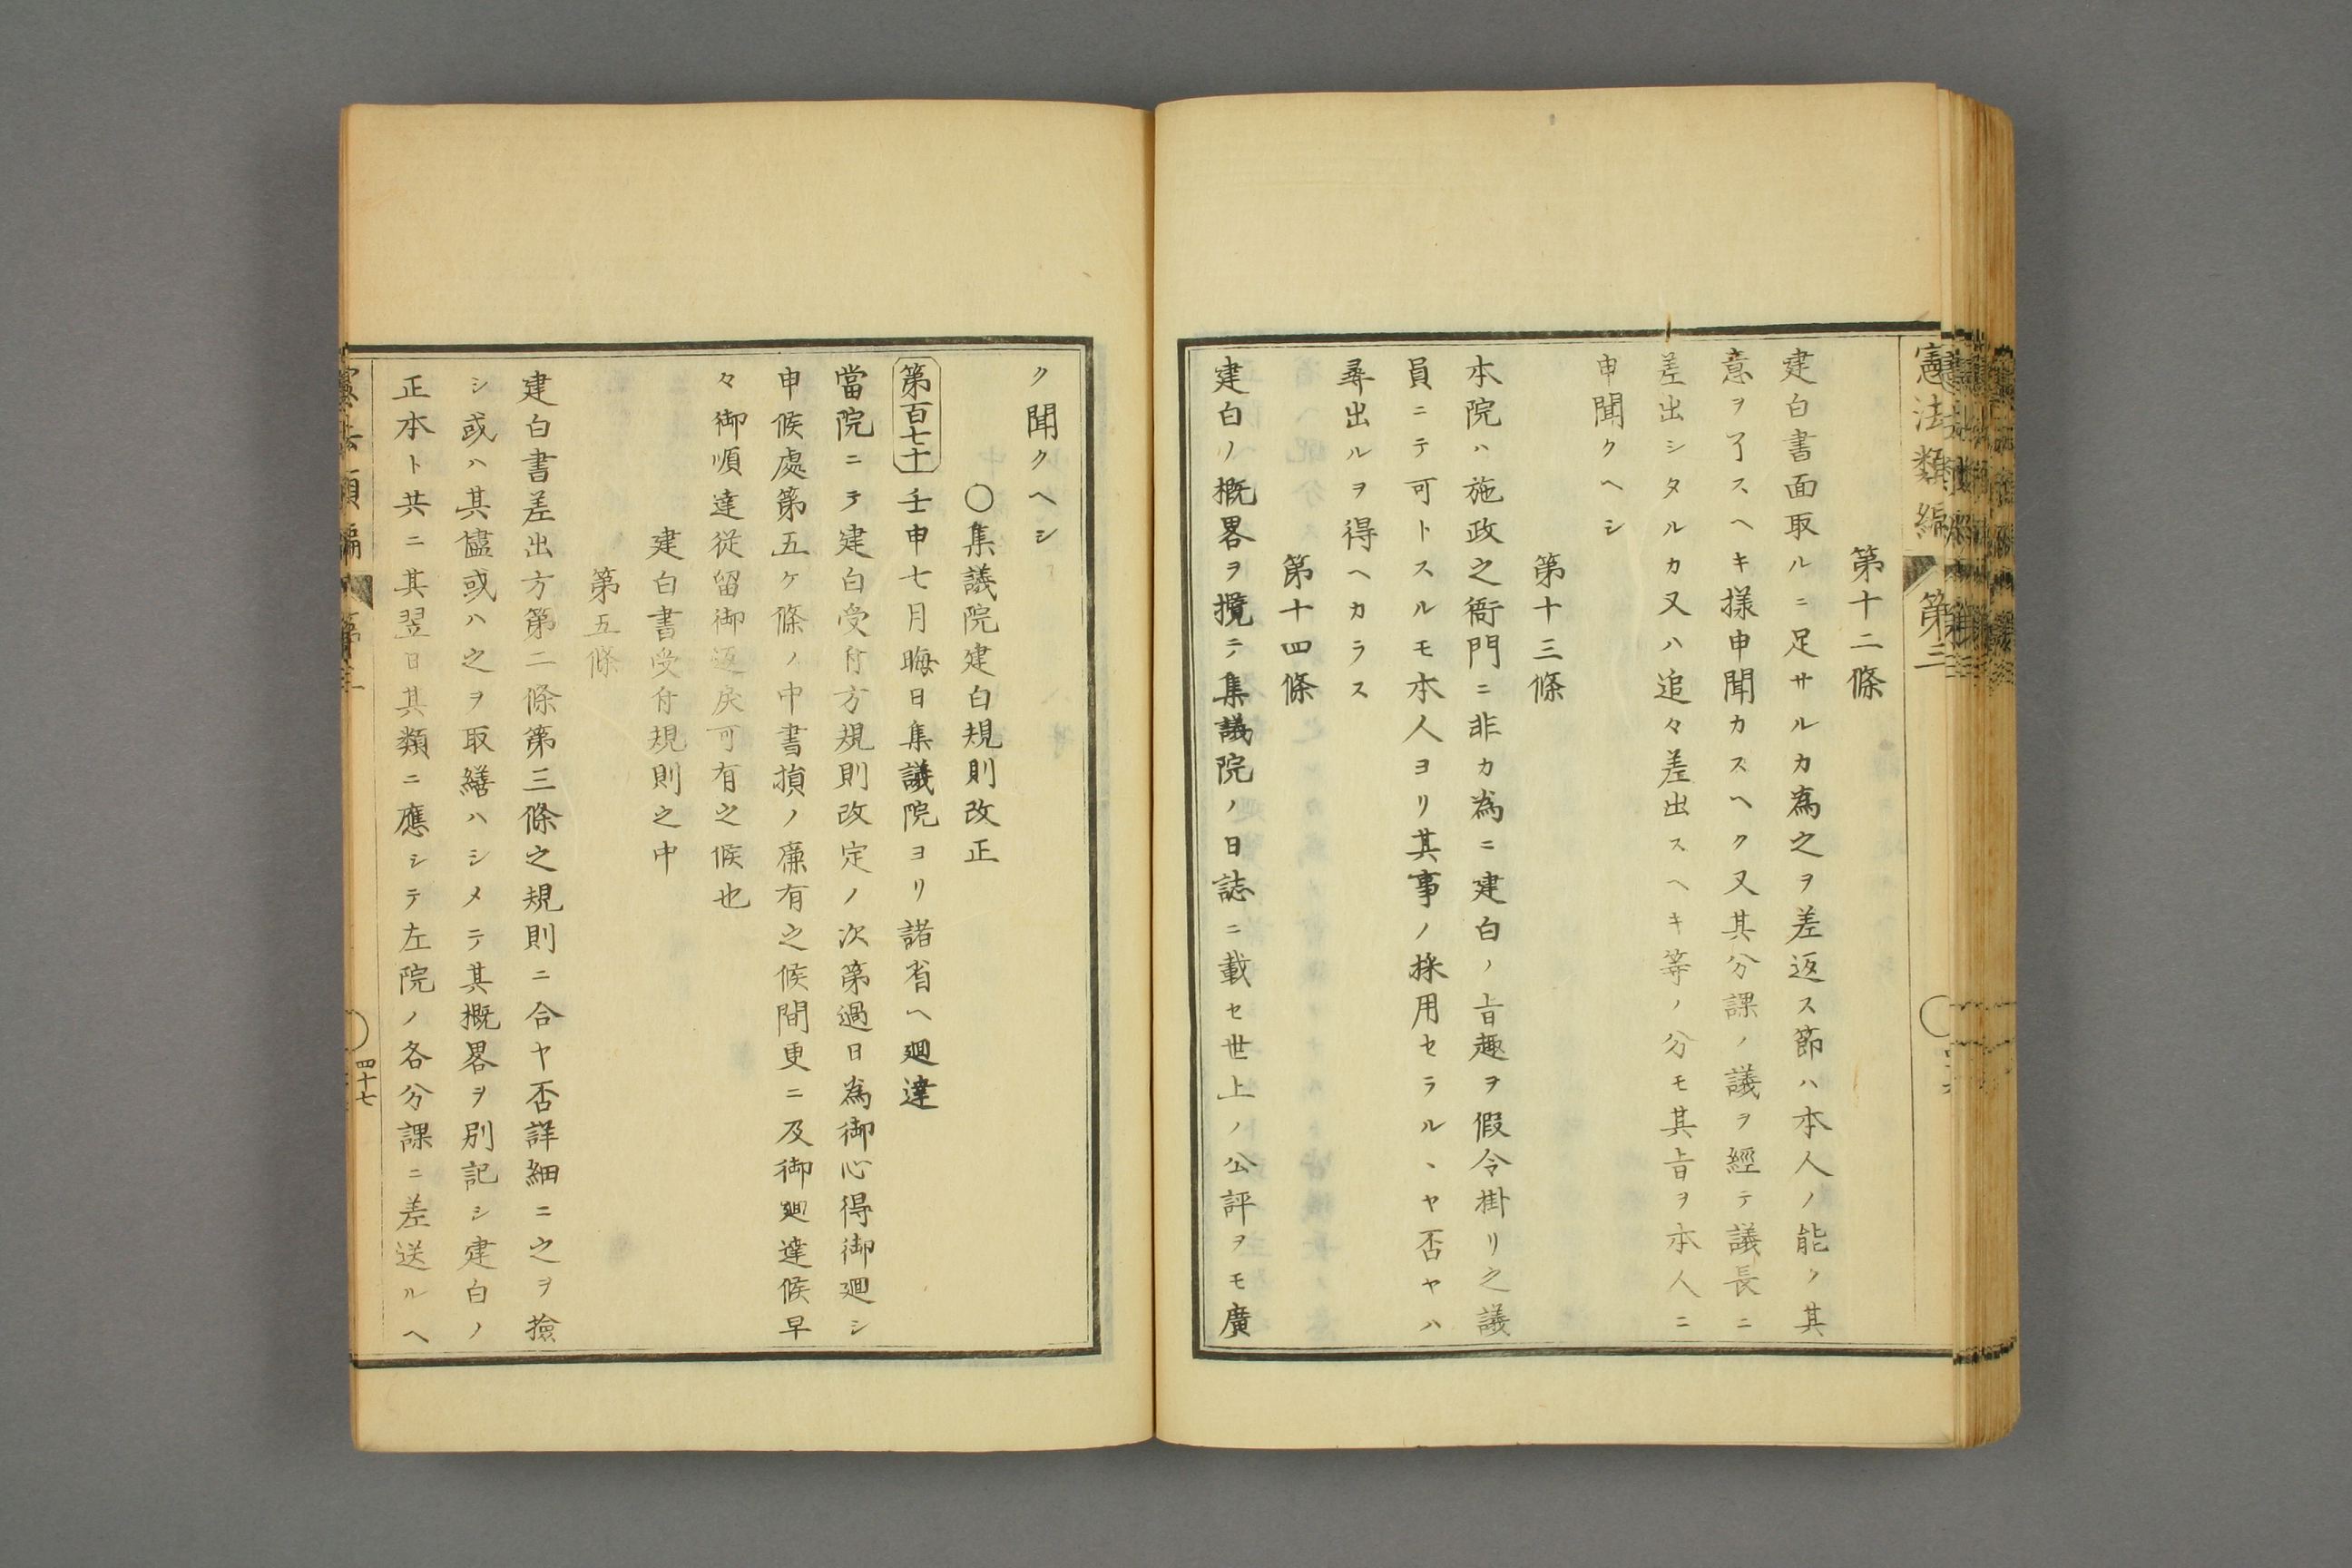 憲法類編
第三
第十二條
建白書面取ルニ足サルカ為之ヲ差返ス節ハ本人ノ能ク其
意ヲ了スヘキ様申聞カスヘク又其分課ノ議ヲ經テ議長ニ
差出シタルカ又ハ追々差出スヘキ等ノ分モ其旨ヲ本人ニ
申聞クヘシ
第十三條
本院ハ施政之衙門ニ非カ為ニ建白ノ旨趣ヲ假令掛リ之議
員ニテ可トスルモ本人ヨリ其事ノ採用セラルヽヤ否ヤハ
尋出ルヲ得ヘカラス
第十四條
建白ノ概畧ヲ攬テ集議院ノ日誌ニ載セ世上ノ公評ヲモ廣
ク聞クヘシ
〇集議院建白規則改正
第百七十 壬申七月晦日集議院ヨリ諸省ヘ廻達
當院ニテ建白受付方規則改定ノ次第過日為御心得御廻シ
申候處第五ケ條ノ中書損ノ廉有之候間更ニ及御廻達候早
々御順達従留御返戻可有之候也
建白書受付規則之中
第五條
建白書差出方第二條第三條之規則ニ合ヤ否詳細ニ之ヲ撿
シ或ハ其儘或ハ之ヲ取繕ハシメテ其概畧ヲ別記シ建白ノ
正本ト共ニ其翌日其類ニ應シテ左院ノ各分課ニ差送ルヘ
四十七